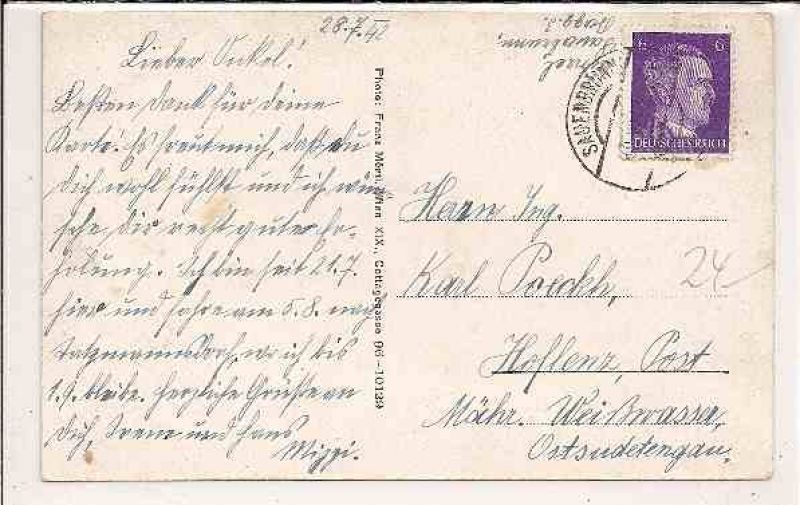 28.7.42
Lieber Onkel!
Besten Dank für deine
Karte! Es freut mich, daß du
dich wohl fühlst und ich wün-
sche dir recht gute Er-
holung. Ich bin seit 21.7.
hier und fahre am 5.8. nach
Tatzmannsdorf, wo ich bis
1.9. bleibe. Herzliche Grüße an
dich, Irene und Hans
Mizzi.
Photo: Franz Mörtl, Wien XIX., Cottagegasse 96 – 10129
6
DEUTSCHES REICH
SAUERBRUNN
Herrn Ing.
Karl Poeckh,
24
Hoflenz, Post
Mähr. Weißwasser,
Ostsudetengau.